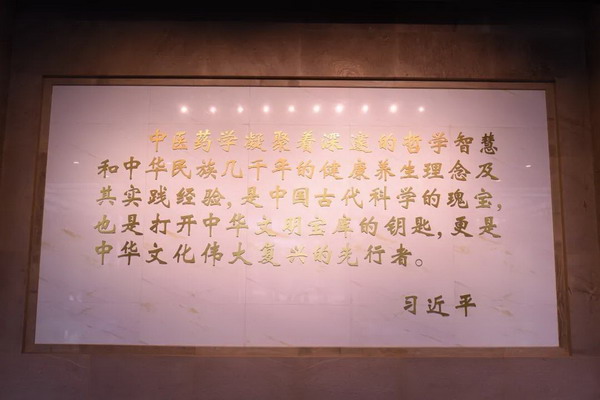 中医药学凝聚着深邃的哲学智慧
和中华民族几千年的健康养生理念及
其实践经验，是中国古代科学的瑰宝，
也是打开中华文明宝库的钥匙，更是
中华文化伟大复兴的先行者。
习近平